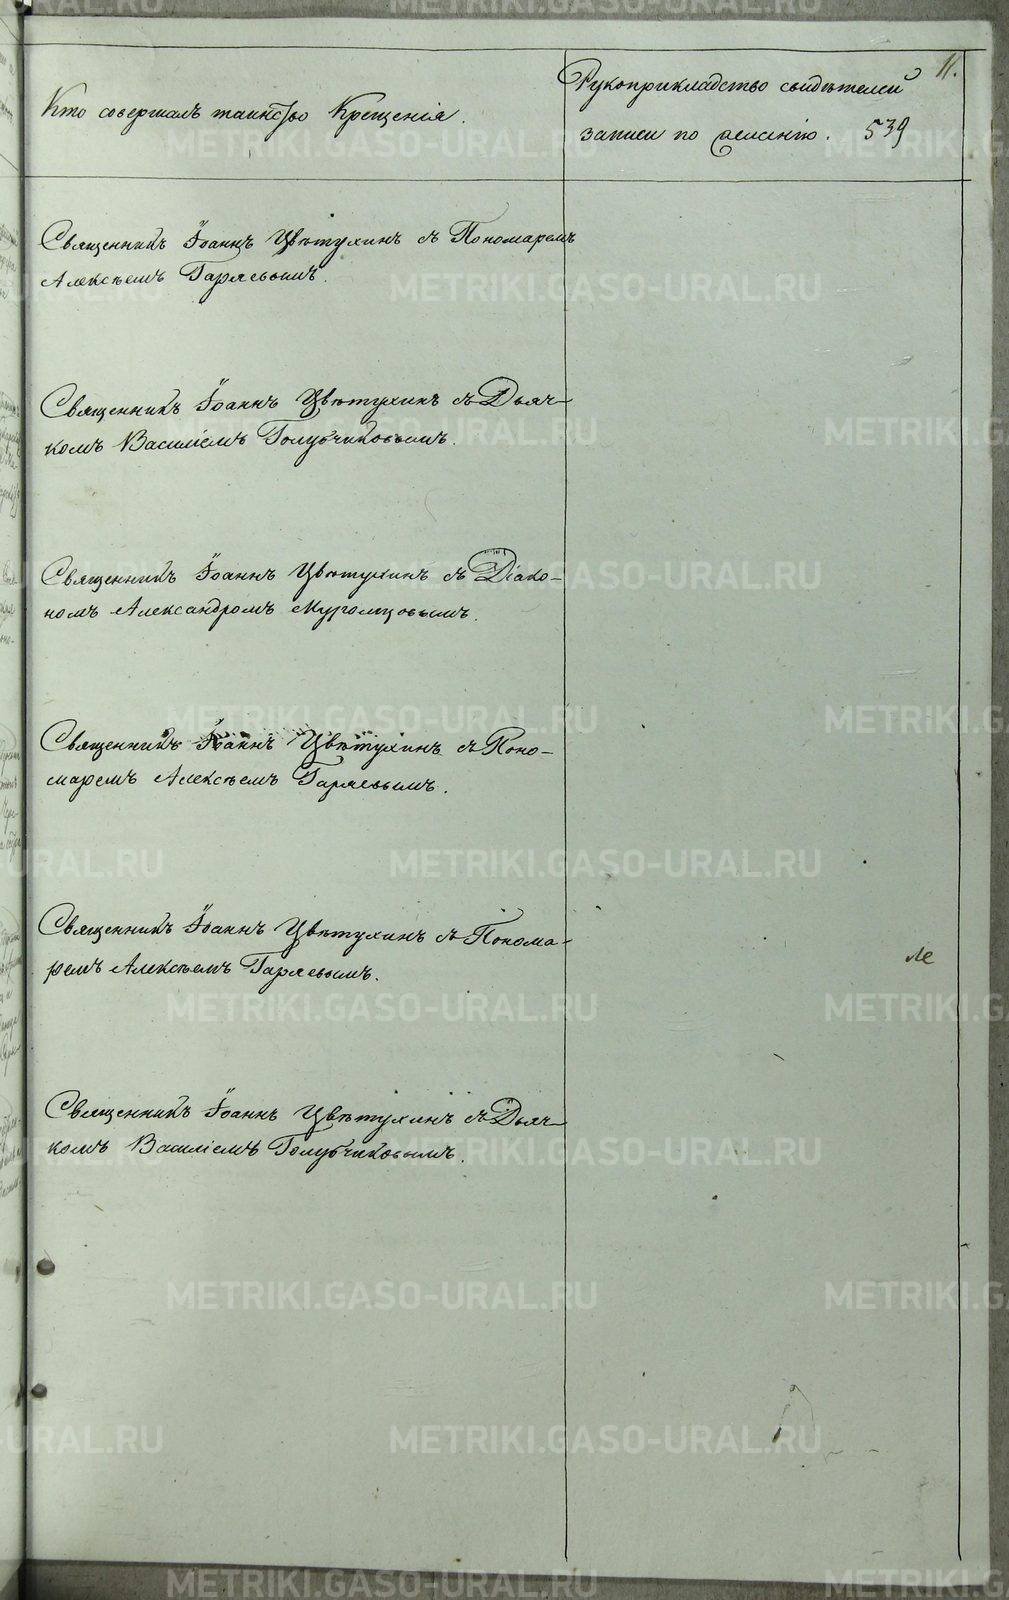 11.
Кто совершалъ таинство Крещенія.
Рукоприкладство свидѣтелей
записи по желанію. 539
Священникъ Іоаннъ Цвѣтухинъ съ Пономаремъ
Алексѣемъ Гаряевымъ.
Священникъ Іоаннъ Цвѣтухинъ съ Дьяч-
комъ Василіемъ Голубчиковымъ.
Священникъ Іоаннъ Цвѣтухинъ съ Діако-
номъ Александромъ
Священникъ Іоаннъ Цвѣтухинъ съ Поно-
маремъ Алексѣемъ Гаряевымъ.
Священникъ Іоаннъ Цвѣтухинъ съ Понома-
ремъ Алексѣемъ Гаряевымъ.
Священникъ Іоаннъ Цвѣтухинъ съ Дьяч-
комъ Василіемъ Голубчиковымъ.
METRIKI.GASO-URAL.RU